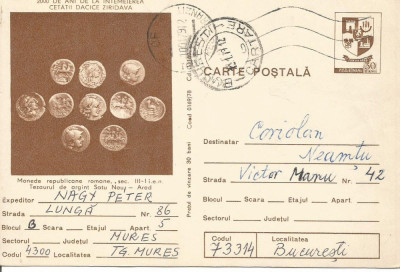 2000 DE ANI DE LA INTEMEIEREA
CETATII DACICE ZIRIDAVA
CARTE POȘTALĂ
Monede republicane romane, sec. III-I î.e.n.
Tezaurul de argint Satu Nou - Arad
Expeditor NAGY PETER
Strada LUNGĂ Nr. 86
Bloc B Scara Etajul Apart. 5
Sectorul Județul MUREȘ
Codul 4300 Localitatea TG. MUREȘ
Codul 0169/78
Prețul de vînzare 30 bani
Destinatar Coriolan
Neamtu
Strada Victor Manu Nr. 42
Bloc Scara Etajul Apart.
Sectorul Județul
Codul Localitatea
73314 București